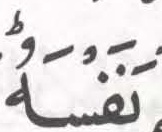 نَفْسَهٗ